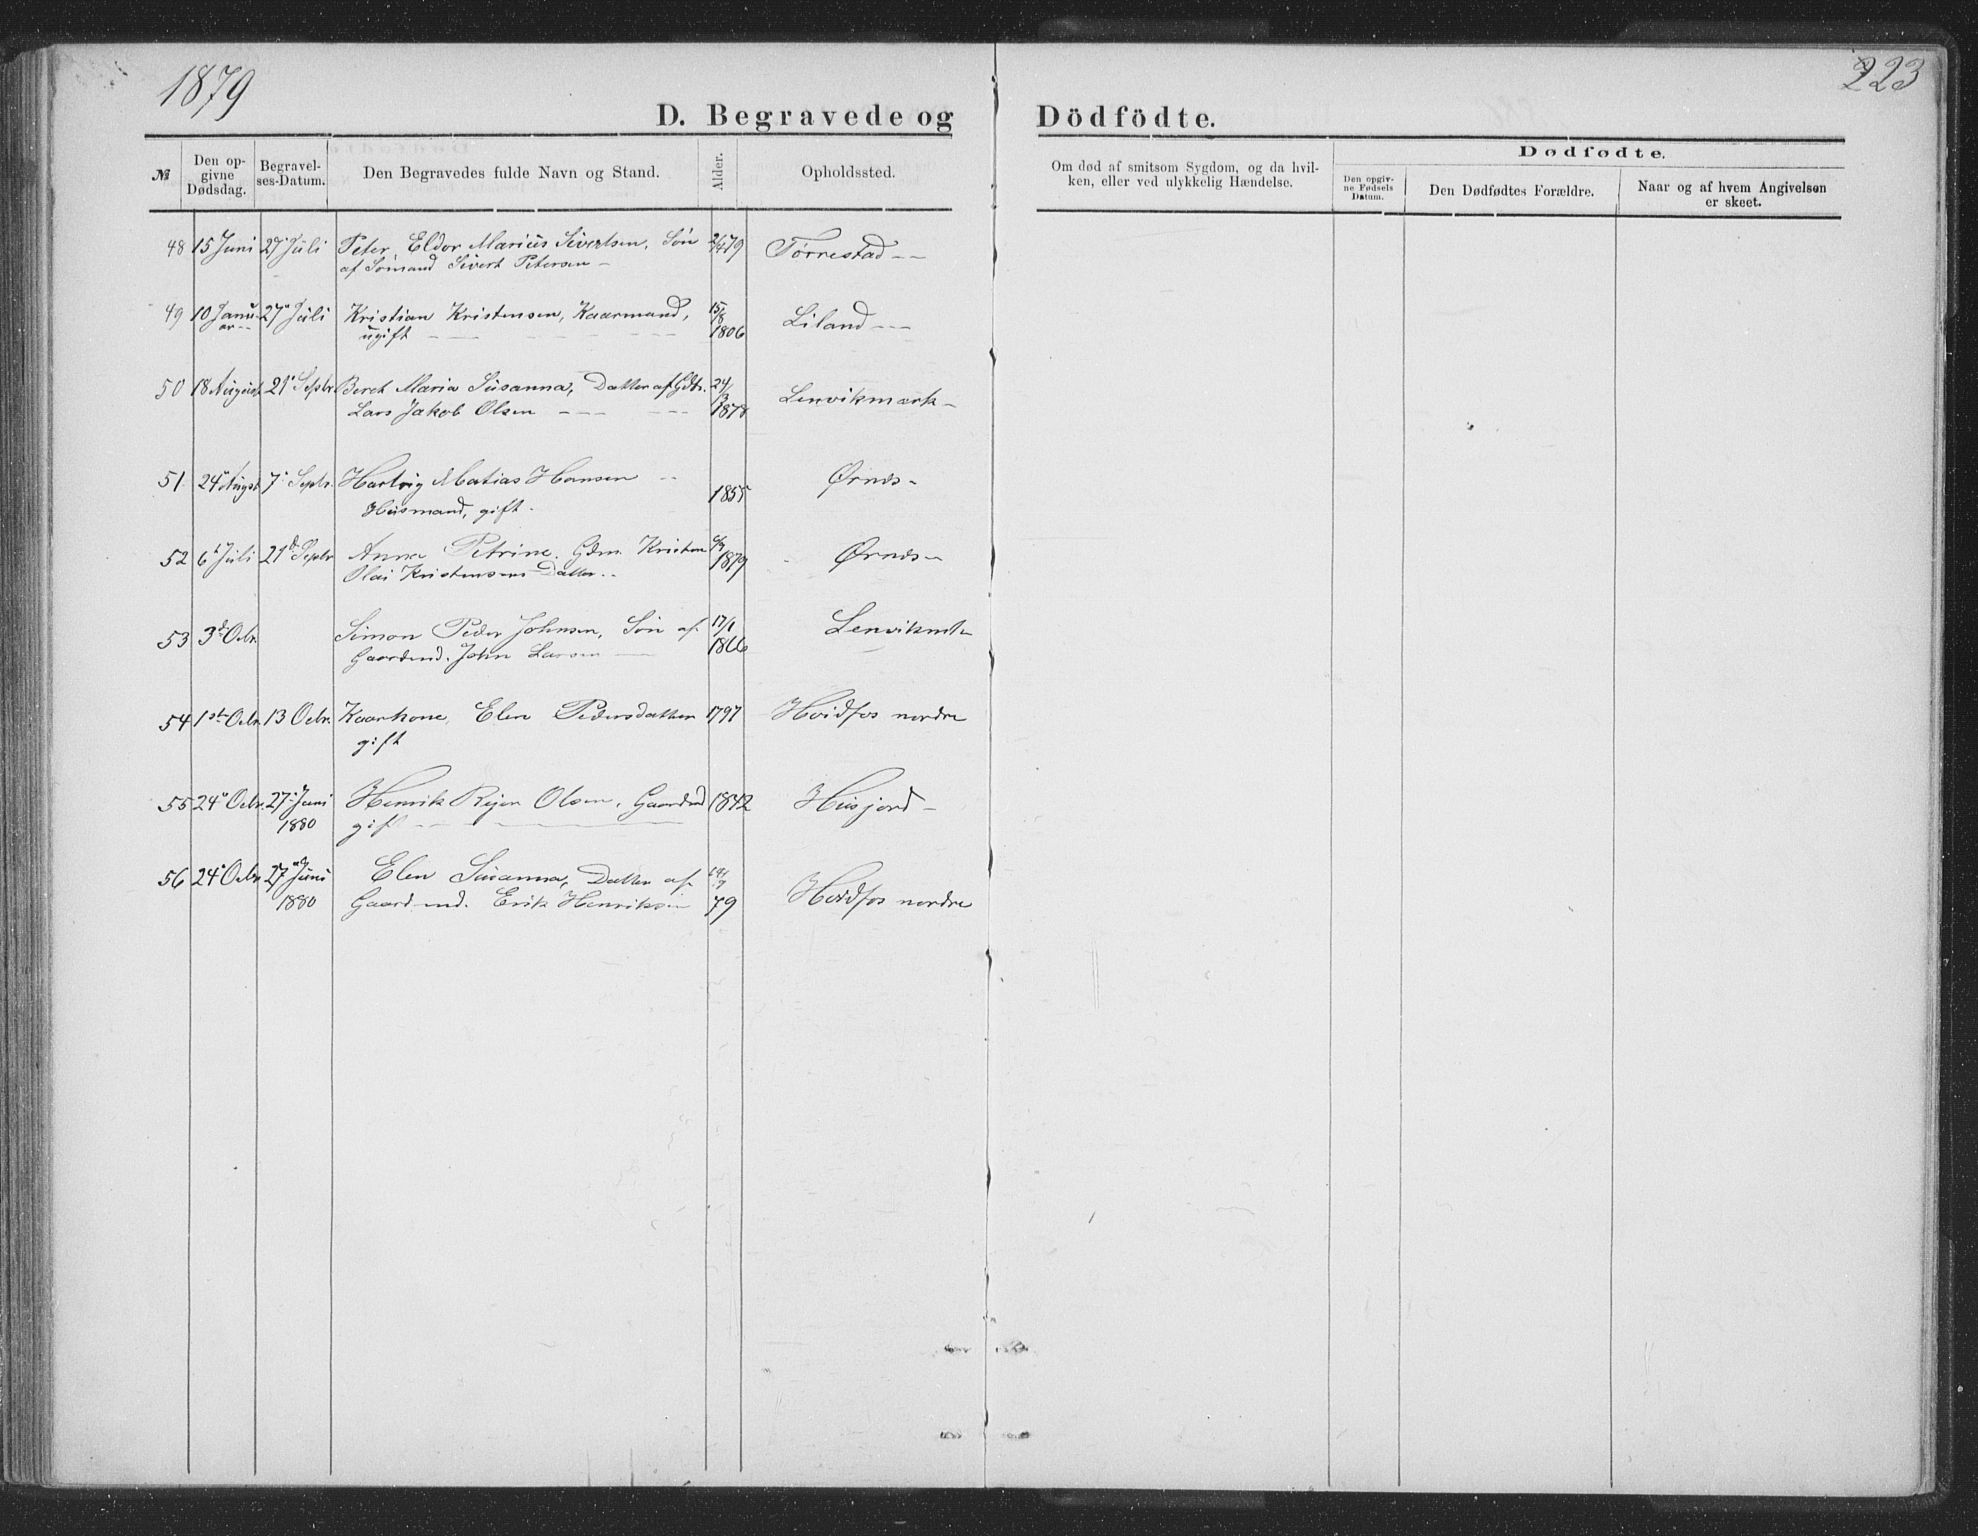 1879
223
D. Begravede og Dödfödte.
№ Den op-
givne
Dødsdag. Begravel-
ses-Datum. Den Begravedes fulde Navn og Stand. Alder. Opholdssted. Om død af smitsom Sygdom, og da hvil-
ken, eller ved ulykkelig Hændelse. Dødfødte.
Den opgiv-
ne Fødsels
Datum. Den Dødfødtes Forældre. Naar og af hvem Angivelsen
er skeet.
48 15 Juni 27 Juli Peter Eldor Marius Sivertsen, Søn 2/4 79 Tørrestad
af Sømand Sivert Petersen
49 10 Janu- 27 Juli Kristian Kristensen, Kaarmand, 15/8 Liland
ar ugift 1806
50 18 August 21 Septbr. Beret Maria Susanna, Datter af Gdbr. 24/3 Lenvikmark
Lars Jakob Olsen 1878
51 24 Augst 7 Septr. Hartvig Matias Hansen 1855 Ørnes
Husmand, gift.
52 6 Juli 21 Septbr Anna Petrine. Gdm. Kristen 1879 Ørnes
Olai Kristensens Datter
53 3 Octr. Simon Peder Johnsen, Søn af 17/1 Lenvikmk
Gaardmd. John Larsen 1866
54 1ste Octbr. 13 Octbr. Kaarkone, Elen Pedersdatter 1797 Hvidfos nordre
gift
55 24 Octbr. 27 Juni Henrik Rejer Olsen, Gaardmd 1842 Husjord
1880 gift
56 24 Octbr 27 Juni Elen Susanna, Datter af
1880 Gaardmd. Erik Henriksen 79 Hvidfos nordre